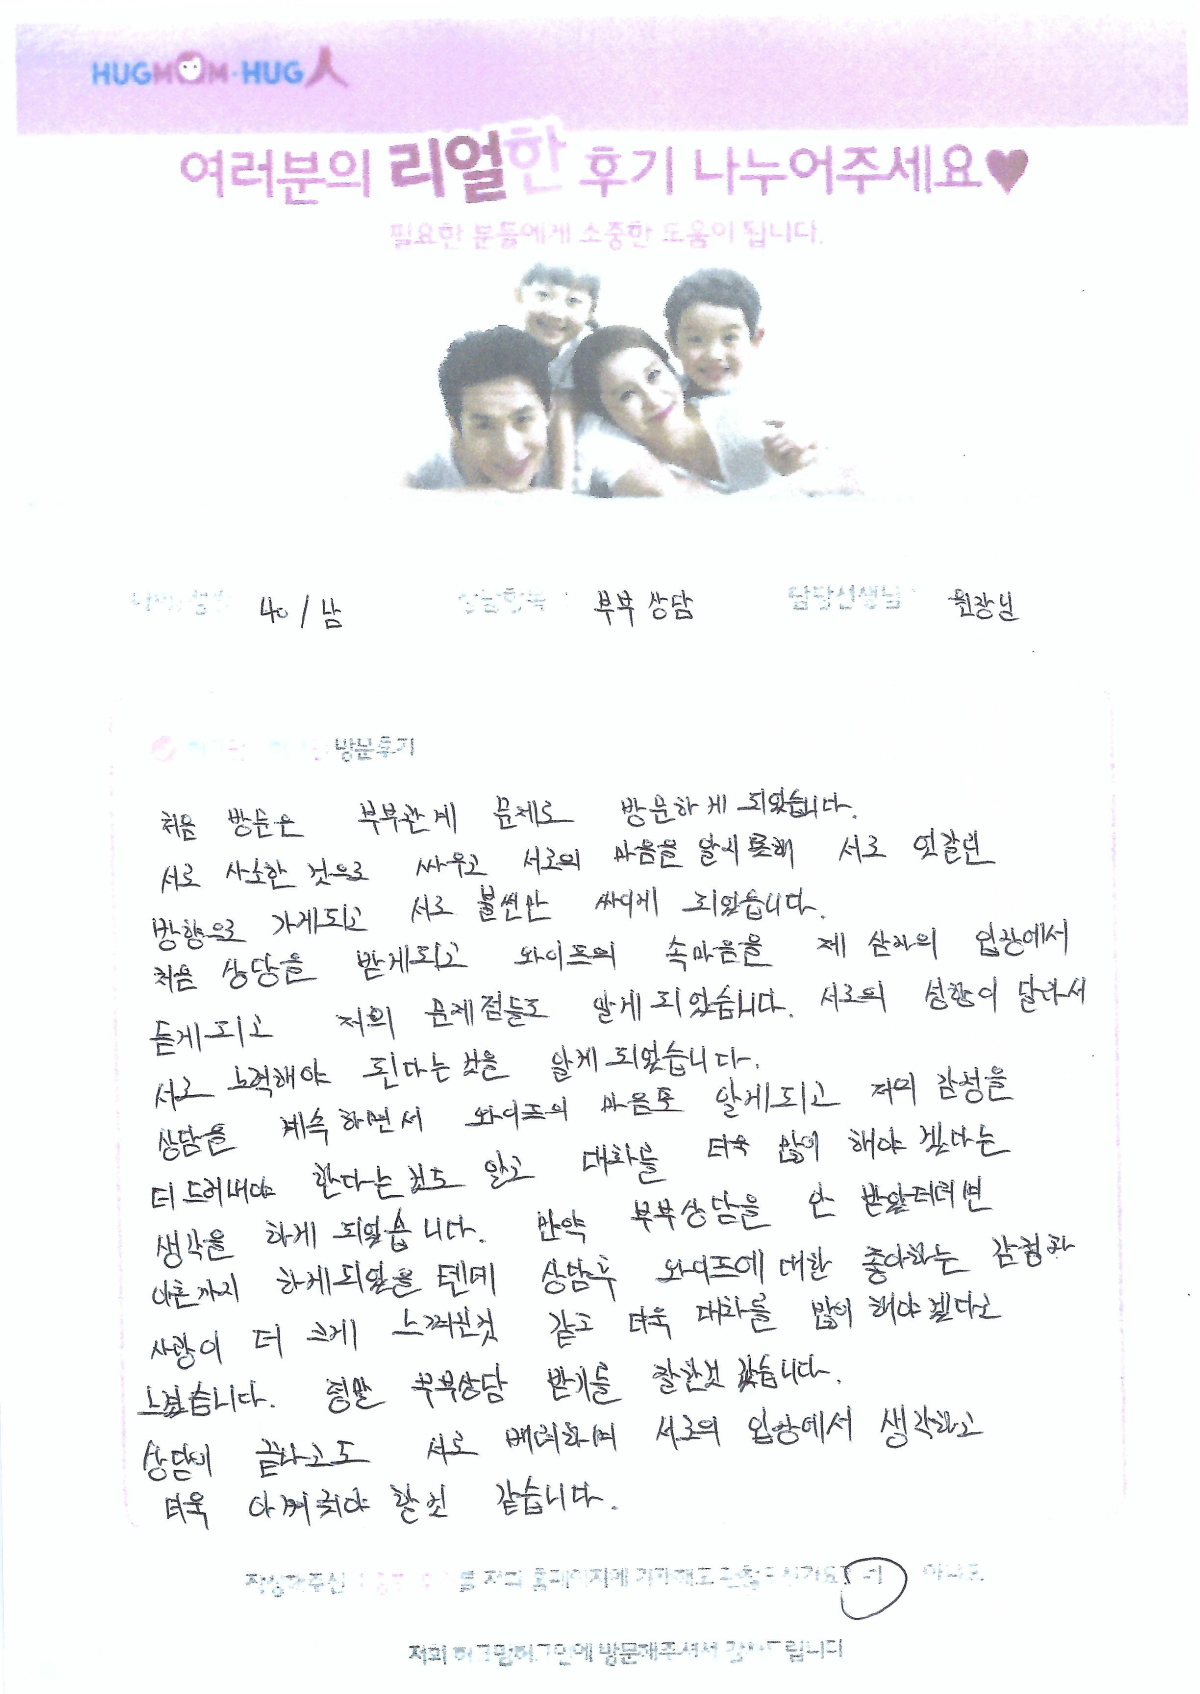 HUGMOM·HUG人
여러분의 리얼한 후기 나누어주세요♥
필요한 분들에게 소중한 도움이 됩니다.
40 / 남 부부 상담 담당선생님 : 원장님
방문후기
처음 방문은 부부관계 문제로 방문하게 되었습니다.
서로 사소한 것으로 싸우고 서로의 마음을 알지 못해 서로 엇갈린
방향으로 가게되고 서로 불씬만 싸이게 되었습니다.
처음 상담을 받게되고 와이프의 속마음을 제 삼자의 입장에서
듣게되고 저의 문제점들도 알게 되었습니다. 서로의 성향이 달라서
서로 노력해야 된다는 것을 알게 되었습니다.
상담을 계속 하면서 와이프의 마음도 알게되고 저의 감정을
더 드러내야 한다는 것도 알고 대화를 더욱 많이 해야 겠다는
생각을 하게 되었습니다. 만약 부부상담을 안 받았더라면
이혼까지 하게되었을 텐데 상담후 와이프에 대한 좋아하는 감정과
사랑이 더 크게 느껴진것 같고 더욱 대화를 많이 해야겠다고
느꼈습니다. 정말 부부상담 받기를 잘한것 같습니다.
상담이 끝나고도 서로 배려하며 서로의 입장에서 생각하고
더욱 아껴줘야 할것 같습니다.
작성해주신 를 저희 홈페이지에 기재해도 괜찮으신가요? 네 아니오
저희 허그맘허그인에 방문해주셔서 감사드립니다